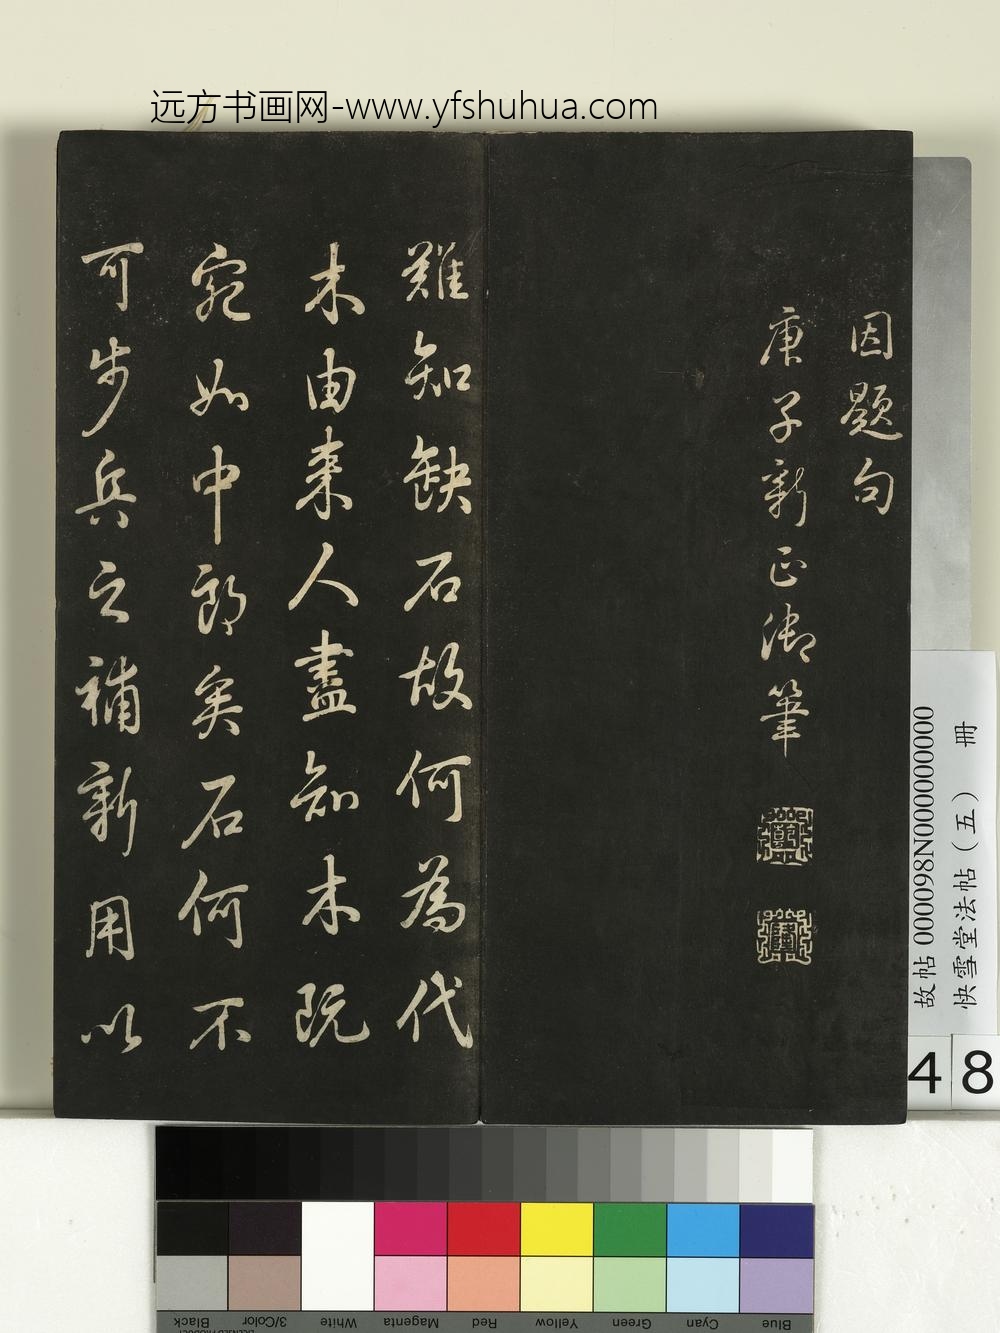 远方书画网-www.yfshuhua.com
因题句
庚子新正御筆
難知缺石故何為代
木由来人盡知木既
宛如中郎矣石何不
可步兵之補新用以
故帖 000098N000000000
快雪堂法帖（五） 冊
48
Black
3/Color
White
Magenta
Red
Yellow
Green
Cyan
Blue